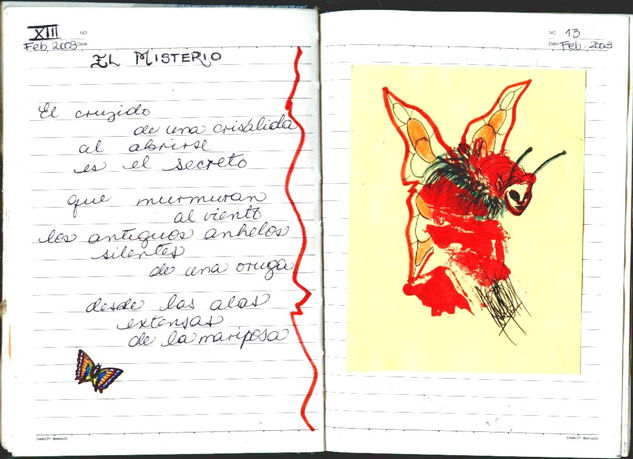 XIII
NO
Feb, 2003 Date
EL MISTERIO
El cruzido
de una crisálida
al abrirse
es el secreto
que murmuran
al viento
los antiguos anhelos
silentes
de una oruga
desde las alas
extensas
de la mariposa
NO 13
Date Feb. 2003